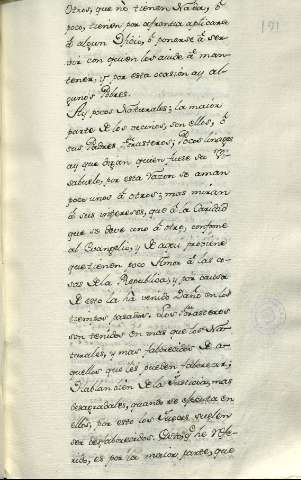 Otros, que no tienen Natur, ó
poco, tienen por afrenta aplicarse
á algun Oficio, ó ponerse á ser-
vir con quien les aiude á man-
tener, y por esta ocasion ay al-
gunos Pobres.
Ay pocos Naturales; la maior
parte de los vecinos, son ellos, ó
sus Padres forasteros; Pocos linages
ay que digan quien fuese su
por esta razon se aman
poco unos á otros; mas miran
á sus intereses, que á la Caridad
que se deve uno á otro, conforme
al Evangelio, y de aqui proviene
que tienen poco Amor á las co-
sas de la Republica, y por causa
de esto la há venido Daño en los
tiempos pasados. Los forasteros
son tenidos en mas que los Nat-
turales, y mas faborecidos de a-
quellos que les pueden faborecer;
Hablan bien de la Justicia, mas
desagradales, quando se egecuta en
ellos, por esto los Jueces suelen
ser desfaborecidos. Esto q.e he refe-
rido, es por la maior parte, que
191